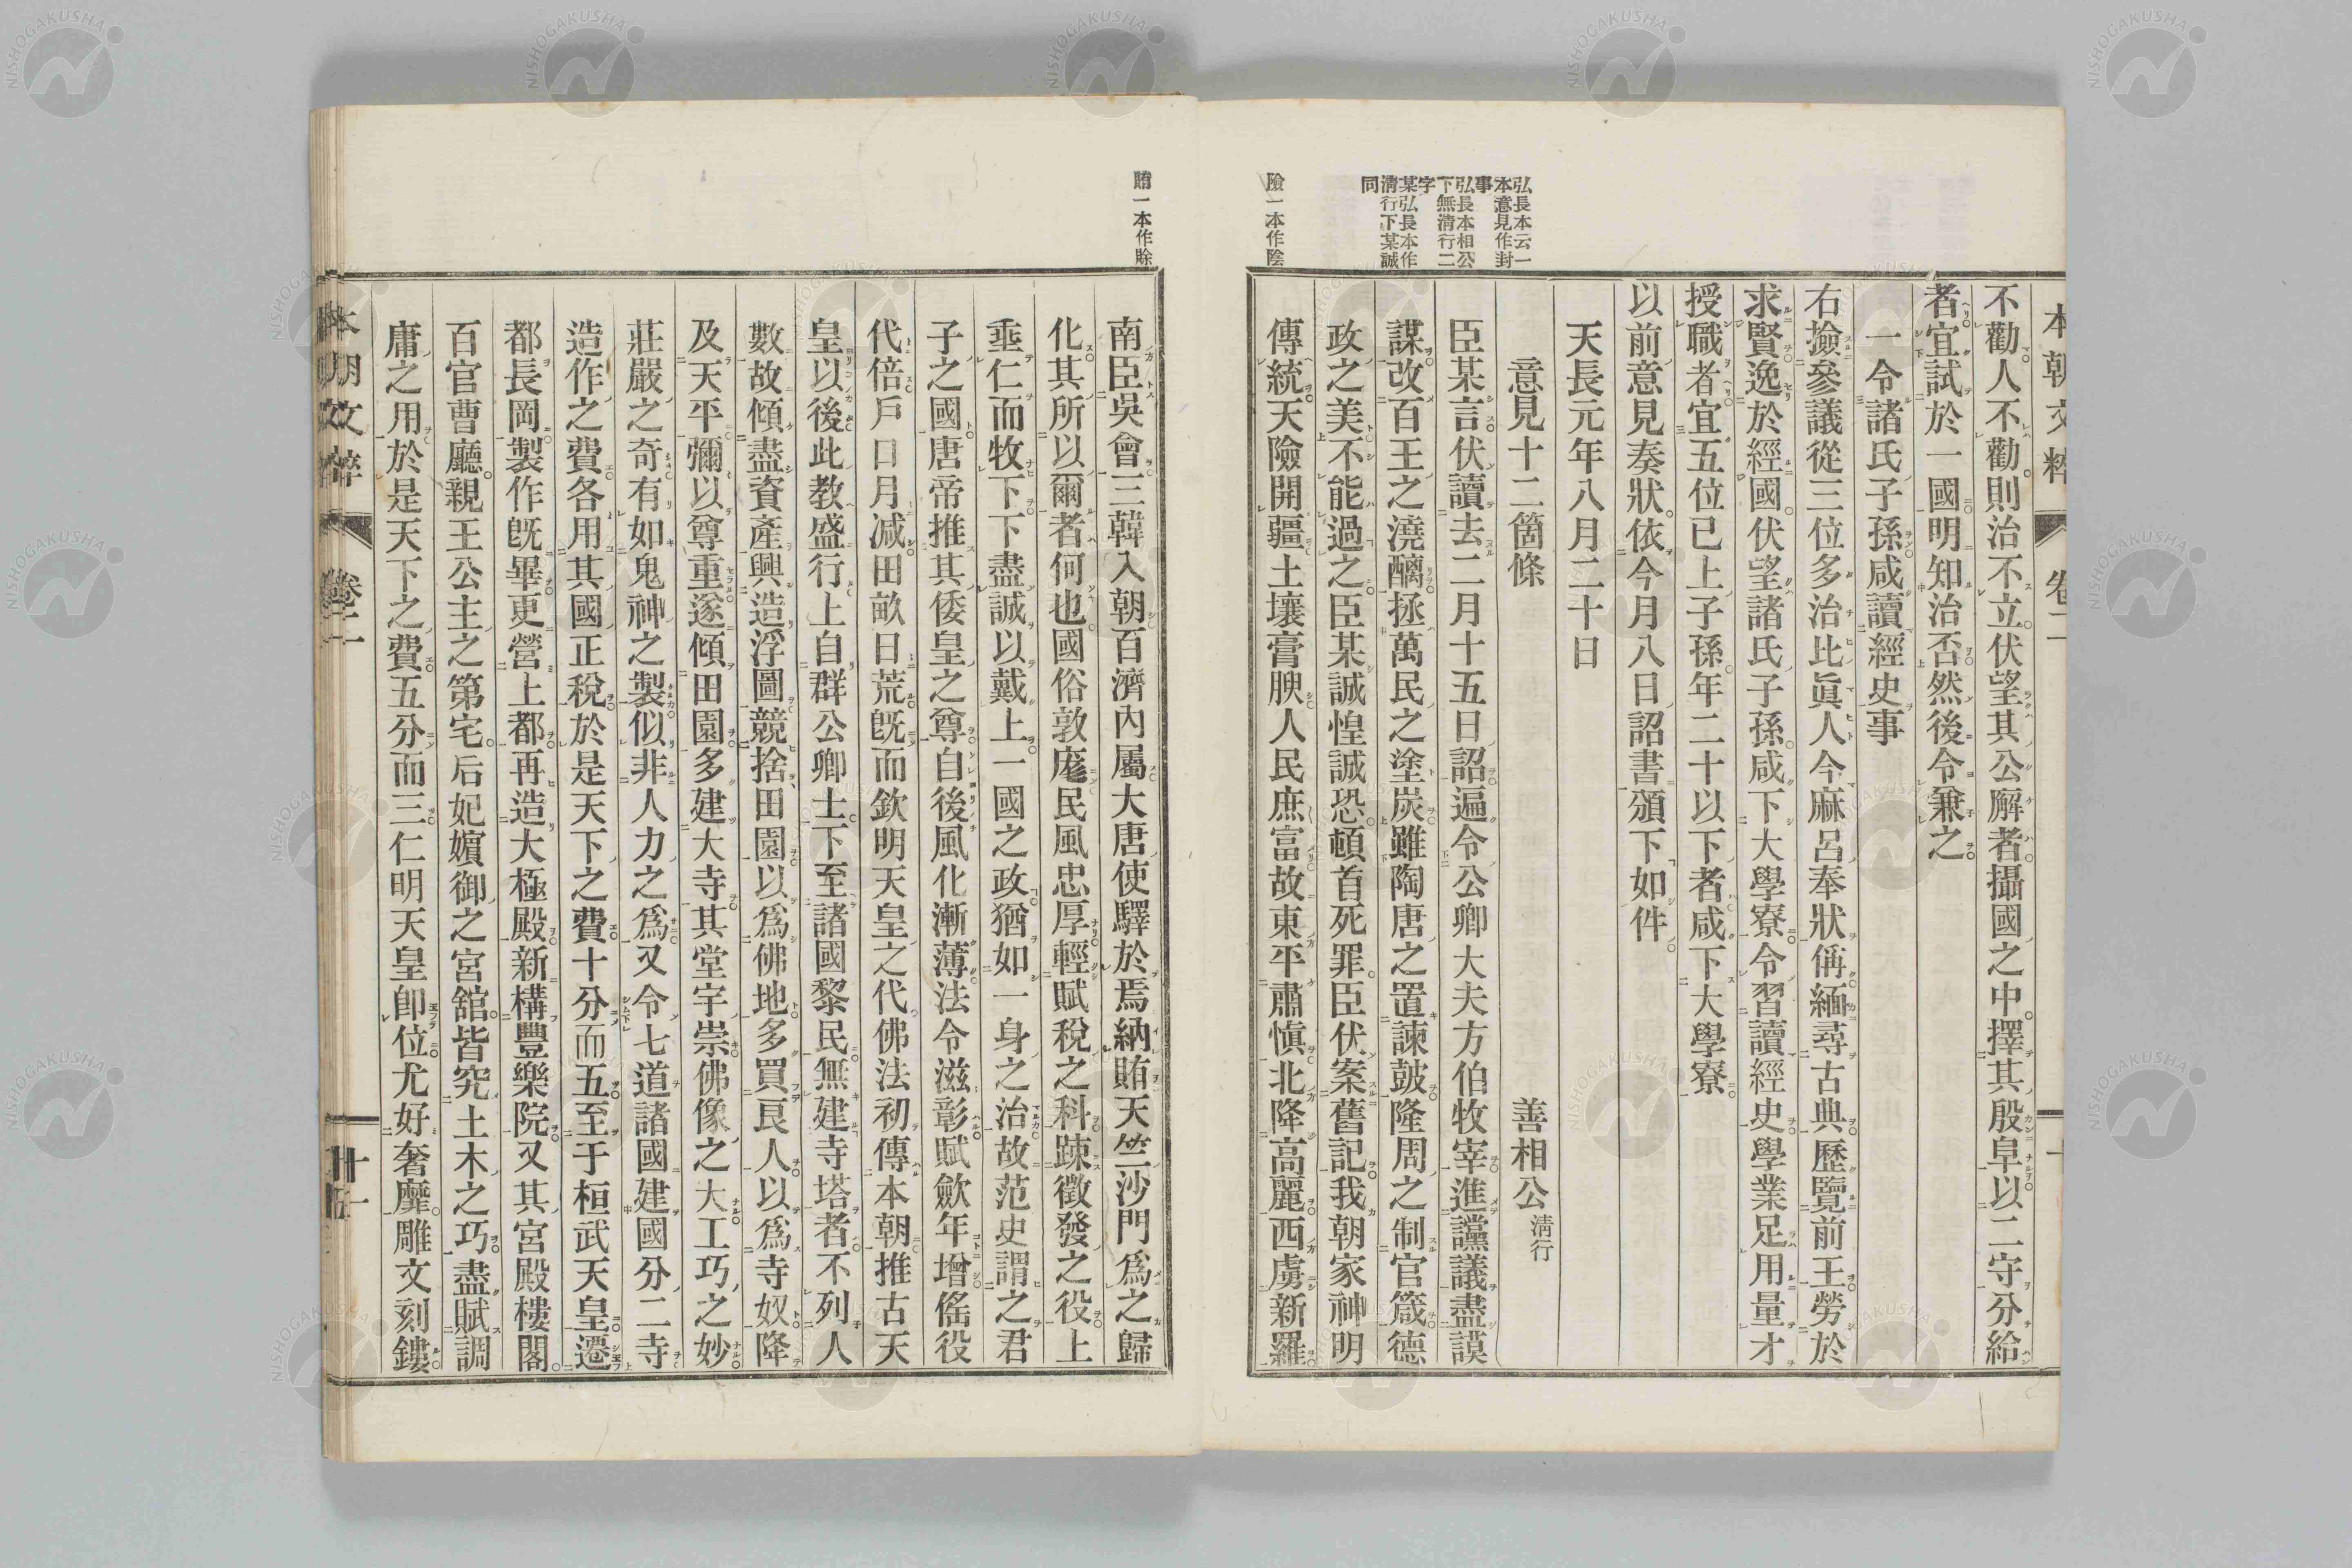 本朝文粹 卷二
弘長本云一
本意見作封
事
弘長本相公
下無淸行二
字
某弘長本作
淸行下某誠
同
險一本作陰
不勸人不勸則治不立伏望其公廨者攝國之中擇其殷阜以二守分給
者宜試於一國明知治否然後令兼之
一令諸氏子孫咸讀經史事
右撿參議從三位多治比眞人今麻呂奉狀偁緬尋古典歷覽前王勞於
求賢逸於經國伏望諸氏子孫咸下大學寮令習讀經史學業足用量才
授職者宜五位已上子孫年二十以下者咸下大學寮
以前意見奏狀依今月八日詔書頒下如件
天長元年八月二十日
意見十二箇條 善相公淸行
臣某言伏讀去二月十五日詔遍令公卿大夫方伯牧宰進讜議盡謨
謀改百王之澆醨拯萬民之塗炭雖陶唐之置諫鼓隆周之制官箴德
政之美不能過之臣某誠惶誠恐頓首死罪臣伏案舊記我朝家神明
傳統天險開疆土壤膏腴人民庶富故東平肅愼北降高麗西虜新羅
賄一本作賖
南臣吳會三韓入朝百濟內屬大唐使驛於焉納賄天竺沙門爲之歸
化其所以爾者何也國俗敦厖民風忠厚輕賦稅之科疎徵發之役上
垂仁而牧下下盡誠以戴上一國之政猶如一身之治故范史謂之君
子之國唐帝推其倭皇之尊自後風化漸薄法令滋彰賦歛年增傜役
代倍戶口月減田畝日荒旣而欽明天皇之代佛法初傳本朝推古天
皇以後此敎盛行上自群公卿士下至諸國黎民無建寺塔者不列人
數故傾盡資產興造浮圖競捨田園以爲佛地多買良人以爲寺奴降
及天平彌以尊重遂傾田園多建大寺其堂宇崇佛像之大工巧之妙
莊嚴之奇有如鬼神之製似非人力之爲又令七道諸國建國分二寺
造作之費各用其國正稅於是天下之費十分而五至于桓武天皇遷
都長岡製作旣畢更營上都再造大極殿新構豐樂院又其宮殿樓閣
百官曹廳親王公主之第宅后妃嬪御之宮舘皆究土木之巧盡賦調
庸之用於是天下之費五分而三仁明天皇卽位尤好奢靡雕文刻鏤
本朝文粹 卷二